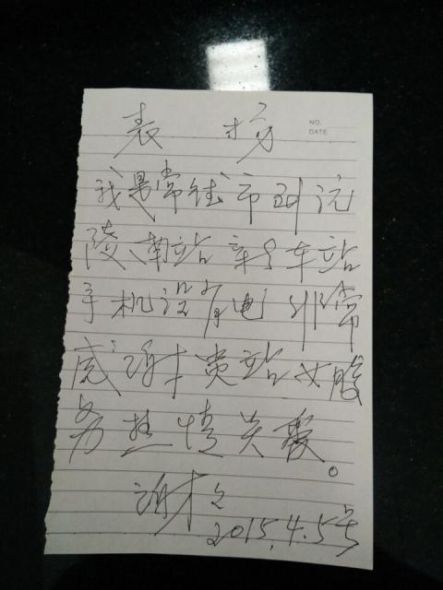 表 扬
NO.
DATE
我是常德市到沅
陵南站 车站
手机没有电非常
感谢贵站女服
务热情关爱。
谢々
2015.4.5号